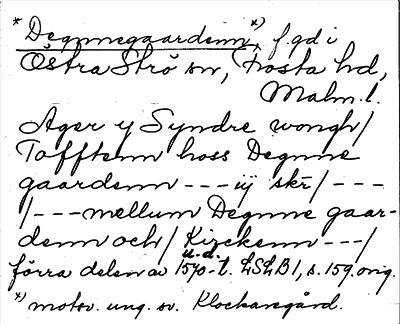 * Degnnegaardenn *), f.gd i
Östra Strö sn, Frosta hd,
Malm.l.
Ager y Syndre wongh/
Tofftenn hoss Degnne
gaardenn --- iij skr/ ---
/--- mellum Degnne gaar-
denn och/ Kirckenn ---/
u.d.
förra delen av 1570-t. LSLB 1, s. 159. orig.
*) motsv. ung. sv. Klockaregård.